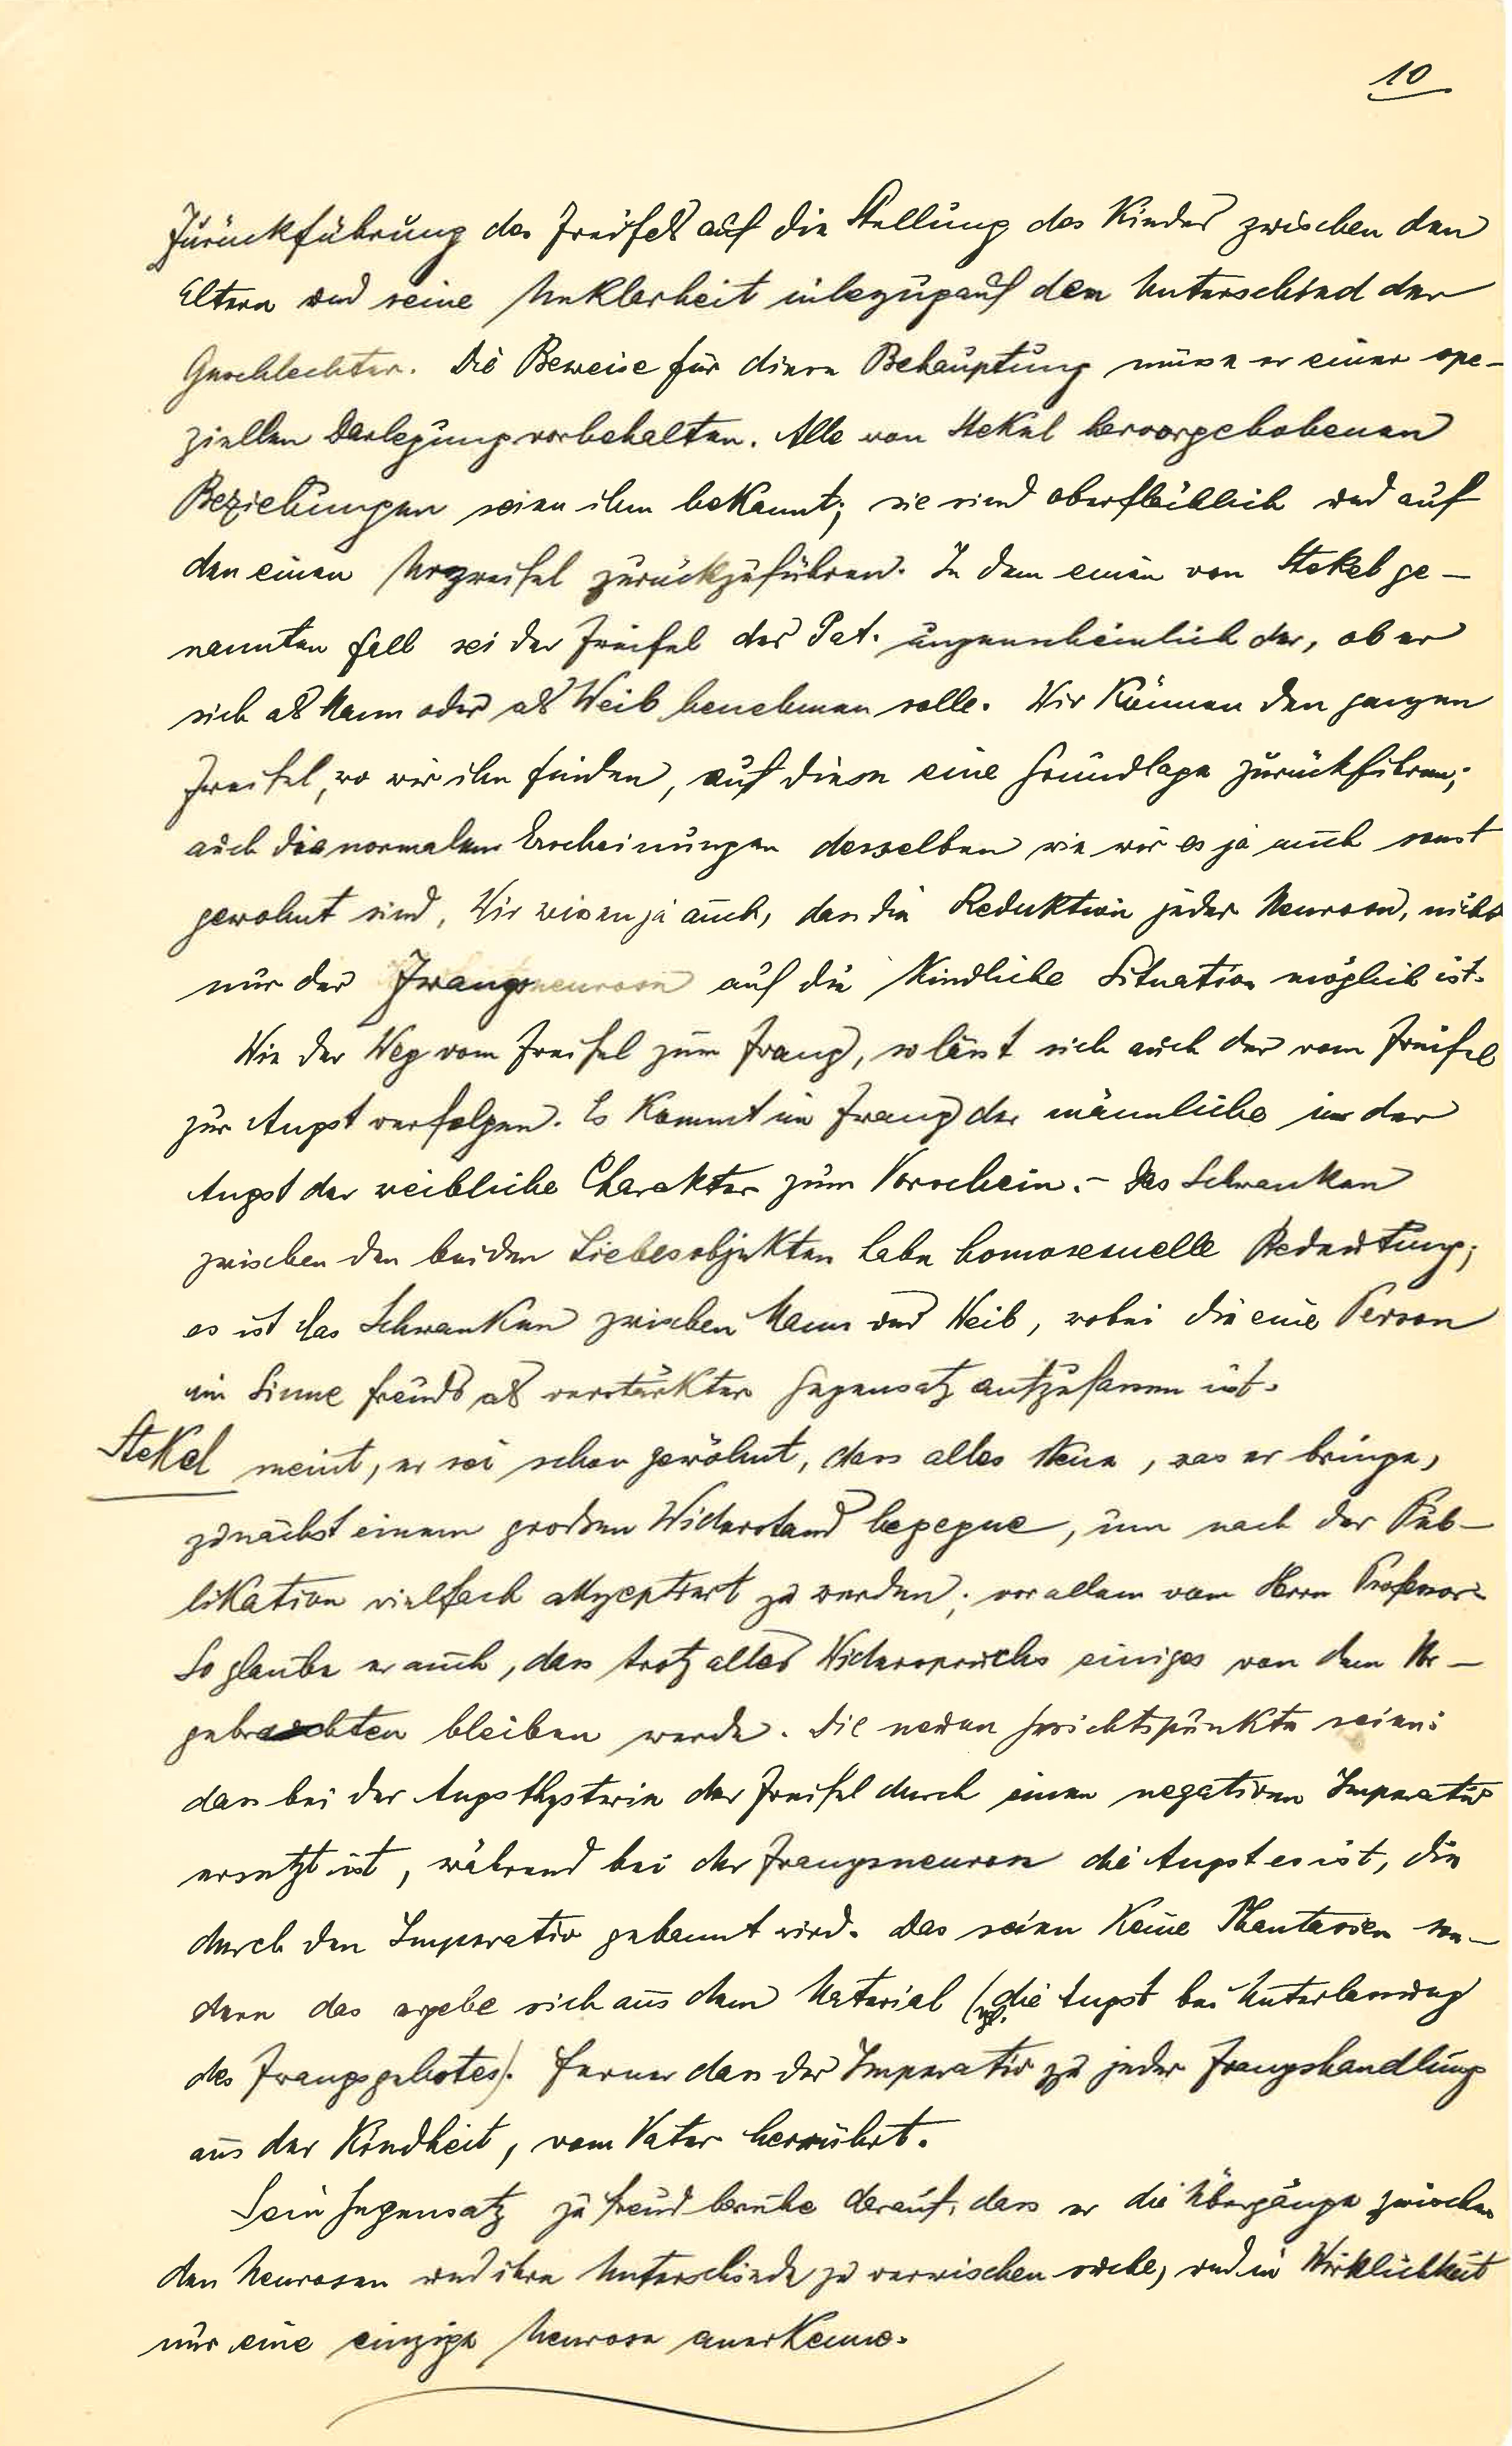 10
Zurückführung des Zweifels auf die Stellung des Kindes zwischen den
Eltern und seine Unklarheit inbezug auf den Unterschied der
Geschlechter. Die Beweise für diese Behauptung müsse er einer spe-
ziellen Darlegung vorbehalten. Alle von Stekel hervorgehobenen
Beziehungen seien ihm bekannt; sie sind oberflächlich und auf
den einen Urzweifel zurückzuführen. In dem einen von Stekel ge-
nannten Fall sei der Zweifel des Pat. augenscheinlich der, ob er
sich als Mann oder als Weib benehmen solle. Wir können den ganzen
Zweifel, wo wir ihn finden, auf diese eine Grundlage zurückführen;
auch die normalen Erscheinungen desselben wie wir es ja auch sonst
gewohnt sind. Wir wissen ja auch, dass die Reduktion jeder Neurose, nicht
nur der Zwangsneurose auf die kindliche Situation möglich ist.
Wie der Weg vom Zweifel zum Zwang, so lässt sich auch der vom Zweifel
zur Angst verfolgen. Es kommt im Zwang der männliche in der
Angst der weibliche Charakter zum Vorschein. – Das Schwanken
zwischen den beiden Liebesobjekten habe homosexuelle Bedeutung;
es ist das Schwanken zwischen Mann und Weib, wobei die eine Person
im Sinne Freuds als verstärkter Gegensatz aufzufassen ist.
Stekel meint, er sei schon gewöhnt, dass alles Neue, was er bringe,
zunächst einem großen Widerstand begegne, um nach der Pub-
likation vielfach akzeptiert zu werden; vor allem vom Herrn Professor.
So glaube er auch, dass trotz alles Widerspruchs einiges von dem Vor-
gebrachten bleiben werde. Die neuen Gesichtspunkte seien:
dass bei der Angsthysterie der Zweifel durch einen negativen Imperativ
ersetzt ist, während bei der Zwangsneurose die Angst es ist, die
durch den Imperativ gebannt wird. Das seien keine Phantasien son-
dern das ergebe sich aus dem Material (vgl. die Angst bei Unterlassung
des Zwangsgebotes). Ferner dass der Imperativ zu jeder Zwangshandlung
aus der Kindheit, vom Vater herrührt.
Sein Gegensatz zu Freud beruhe darauf, dass er die Übergänge zwischen
den Neurosen und ihre Unterschiede zu verwischen suche, und in Wirklichkeit
nur eine einzige Neurose anerkenne.